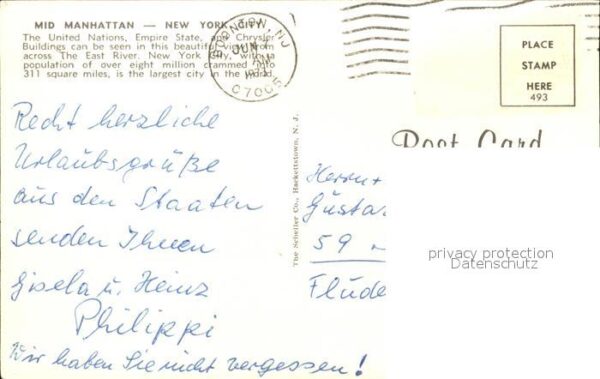 MID MANHATTAN — NEW YORK CITY
The United Nations, Empire State, and Chrysler
Buildings can be seen in this beautiful from
across The East River. New York City, with a
population of over eight million crammed into
311 square miles, is the largest city in the world.
BOONTON, NJ
JUN
PM
07005
PLACE
STAMP
HERE
493
Post Card
Recht herzliche
Urlaubsgrüße
aus den Staaten
senden Ihnen
Gisela u. Heinz
Philippi
Wir haben Sie nicht vergessen!
The Scheller Co., Hackettstown, N. J.
Herrn +
Gusta
59
Flüde
privacy protection
Datenschutz